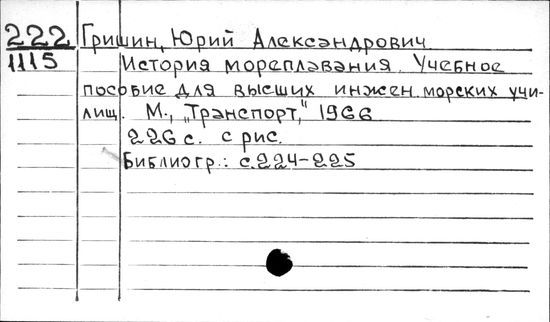 222 Гришин, Юрий Александрович
1115 История мореплавания. Учебное
пособие для высших инжен. морских учи-
лищ. М., „Транспорт," 1966
226 с. с рис.
Библиогр.: с. 224-225